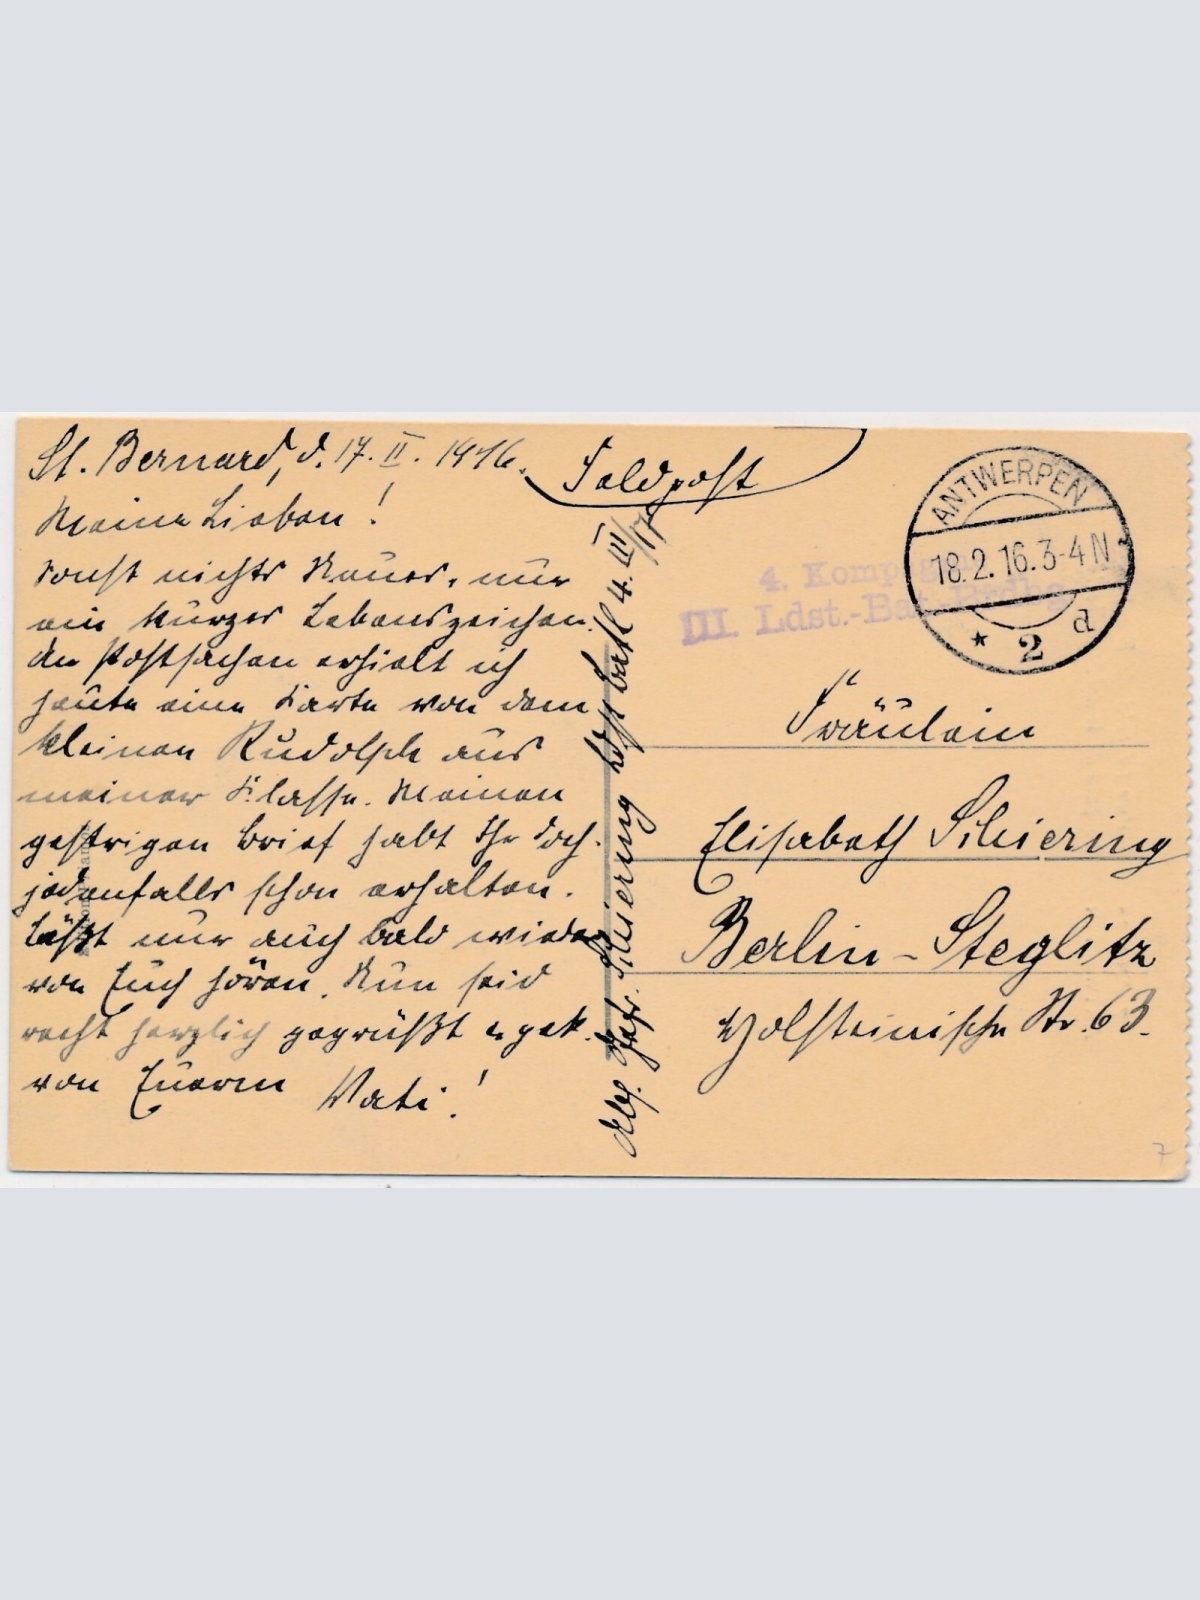 St. Bernard, d. 17. II. 1916.
Meine Lieben!
sonst nichts Neues, nur
ein kurzes Lebenszeichen.
An Postsachen erhielt ich
heute eine Karte von dem
kleinen Rudolph aus
meiner Klasse. Meinen
gestrigen Brief habt Ihr doch
jedenfalls schon erhalten.
Laßt nur auch bald wieder
von Euch hören. Nun seid
recht herzlich gegrüßt u. gek.
von Eurem Vati!
Feldpost
Abs. Gefr. Schiering Ldst. Batl 4. III/17
ANTWERPEN
18.2.16.3-4N
* 2 d
4. Komp
III. Ldst.-Bat.
Fräulein
Elisabeth Schiering
Berlin-Steglitz
Holsteinische Str. 63.
7